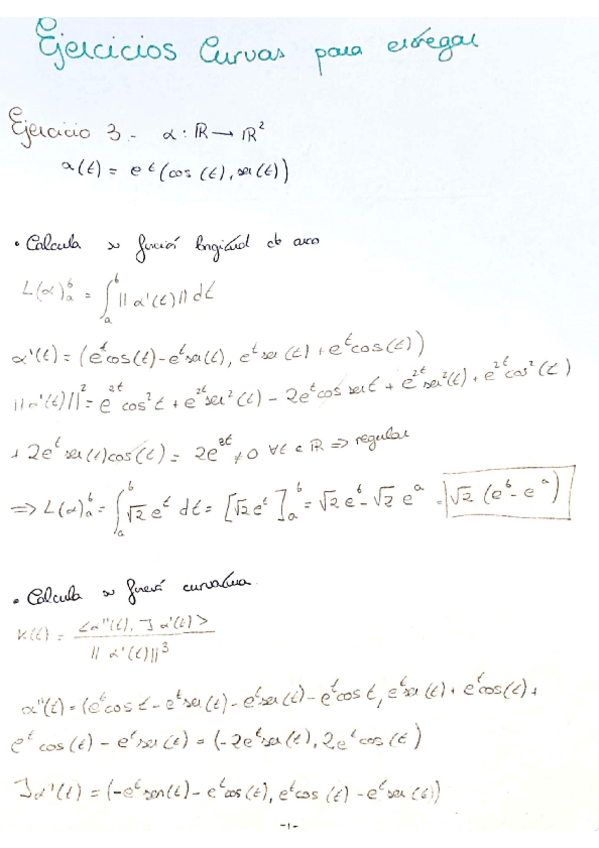 Ejercicios Curvas para entregar
Ejercicio 3.- α : ℝ → ℝ²
α(t) = e^t (cos(t), sen(t))
• Calcula su función longitud de arco
L(α)_a^b = ∫_a^b ||α'(t)|| dt
α'(t) = (e^t cos(t) - e^t sen(t), e^t sen(t) + e^t cos(t))
||α'(t)||² = e^{2t} cos² t + e^{2t} sen²(t) - 2e^t cos sen t + e^{2t} sen²(t) + e^{2t} cos²(t)
+ 2e^t sen(t) cos(t) = 2e^{2t} ≠ 0 ∀t ∈ ℝ ⇒ regular
⇒ L(α)_a^b = ∫_a^b √2 e^t dt = [√2 e^t]_a^b = √2 e^b - √2 e^a = √2 (e^b - e^a)
• Calcula su función curvatura.
K(t) = <α''(t), J α'(t)> / ||α'(t)||³
α''(t) = (e^t cos t - e^t sen(t) - e^t sen(t) - e^t cos t, e^t sen(t) + e^t cos(t) +
e^t cos(t) - e^t sen(t) = (-2e^t sen(t), 2e^t cos(t)
Jα'(t) = (-e^t sen(t) - e^t cos(t), e^t cos(t) - e^t sen(t))
-1-